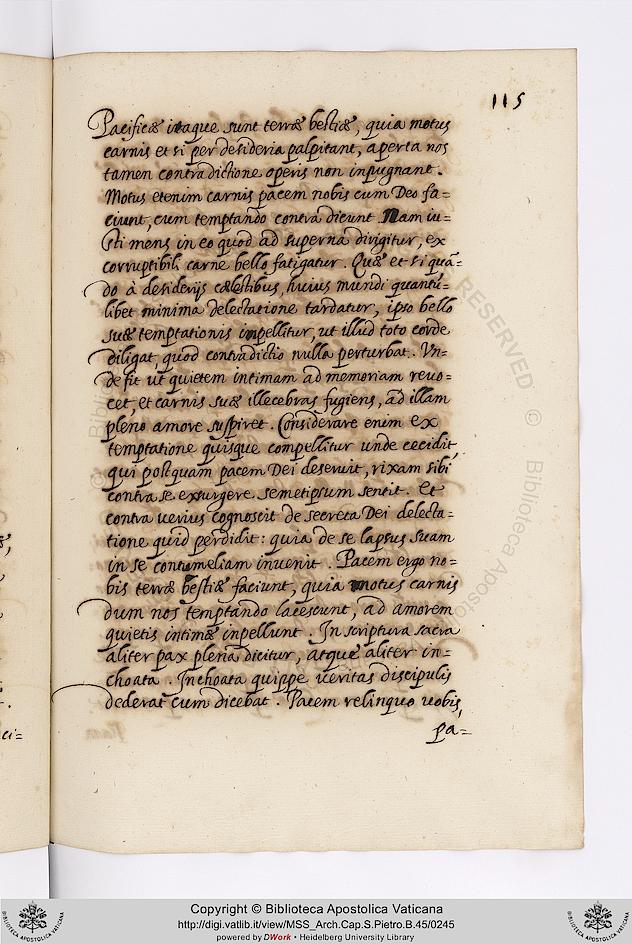 115
Pacificæ itaque sunt terræ bestiæ, quia motus
carnis et si per desideria palpitant, aperta nos
tamen contradictione operis non inpugnant.
Motus etenim carnis pacem nobis cum Deo fa=
ciunt, cum temptando contradicunt. Nam iu=
sti mens in eo quod ad superna dirigitur, ex
corruptibili carne bello fatigatur. Quæ et si quã=
do à desiderijs cælestibus, huius mundi quantu=
libet minima delectatione tardatur, ipso bello
suæ temptationis inpellitur, ut illud toto corde
diligat, quod contradictio nulla perturbat. Vn=
de fit ut quietem intimam ad memoriam revo=
cet, et carnis suæ illecebras fugiens, ad illam
pleno amore suspiret. Considerare enim ex
temptatione quisque compellitur unde cecidit,
qui postquam pacem Dei deseruit, rixam sibi
contra se exsurgere semetipsum sentit. Et
contra verius cognoscit de secreta Dei delecta=
tione quid perdidit: quia de se lapsus, suam
in se contumeliam invenit. Pacem ergo no=
bis terræ bestiæ faciunt, quia motus carnis
dum nos temptando lacescunt, ad amorem
quietis intimæ inpellunt. In scriptura sacra
aliter pax plena dicitur, atque aliter in=
choata. Inchoata quippe veritas discipulis
dederat cum dicebat. Pacem relinquo vobis,
pa=
ci=
RESERVED © Biblioteca Apostolica
Copyright © Biblioteca Apostolica Vaticana
http://digi.vatlib.it/view/MSS_Arch.Cap.S.Pietro.B.45/0245
powered by DWork • Heidelberg University Library